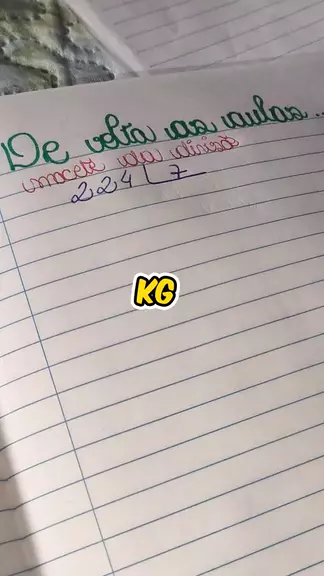 De volta as aulas...
macete da divisão
224 7
KG